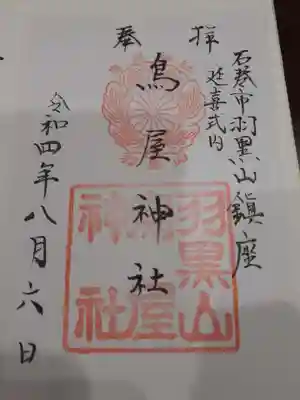 石巻市羽黒山鎮座
延喜式内
奉拝
鳥屋神社
羽黒山
鳥屋
神社
令和四年八月六日